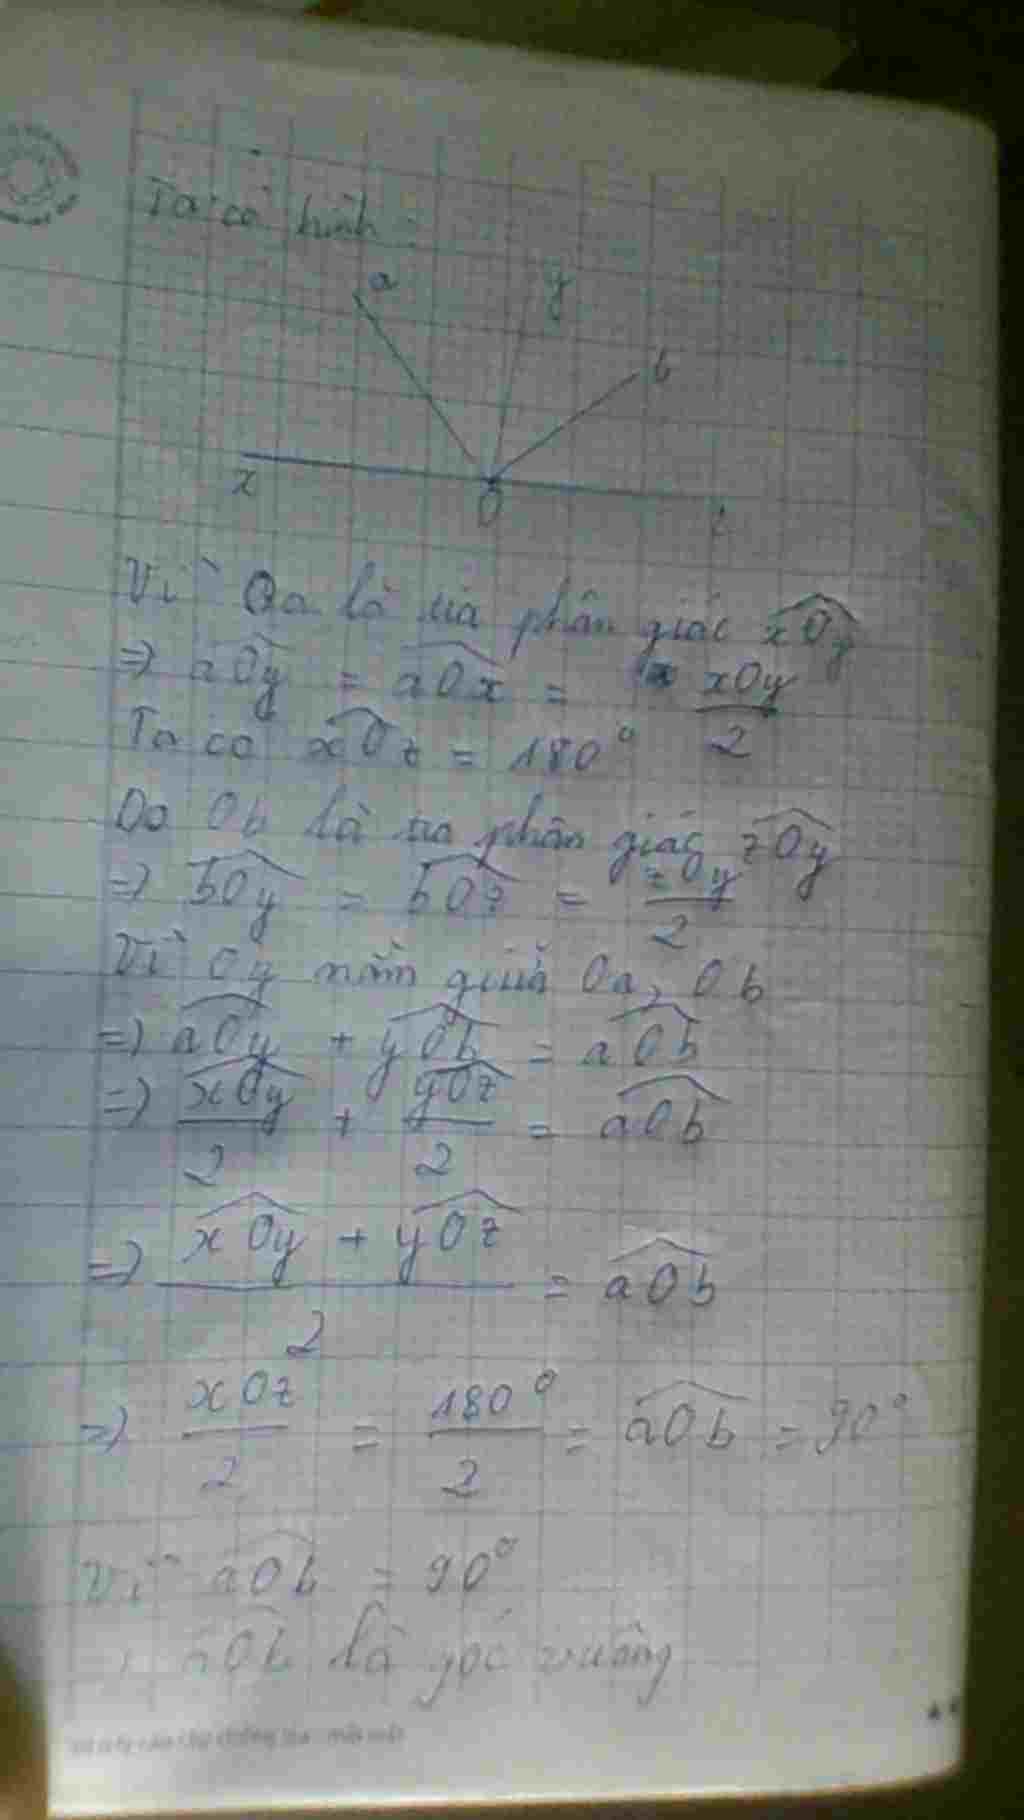 Ta có hình :
a
y
b
x
O
z
Vì Oa là tia phân giác xOy
=> aOy = aOx = xOy/2
Ta có xOz = 180°
Do Ob là tia phân giác zOy
=> bOy = bOz = zOy/2
Vì Oy nằm giữa Oa, Ob
=> aOy + yOb = aOb
=> xOy/2 + yOz/2 = aOb
=> (xOy + yOz)/2 = aOb
=> xOz/2 = 180°/2 = aOb = 90°
Vì aOb = 90°
aOb là góc vuông